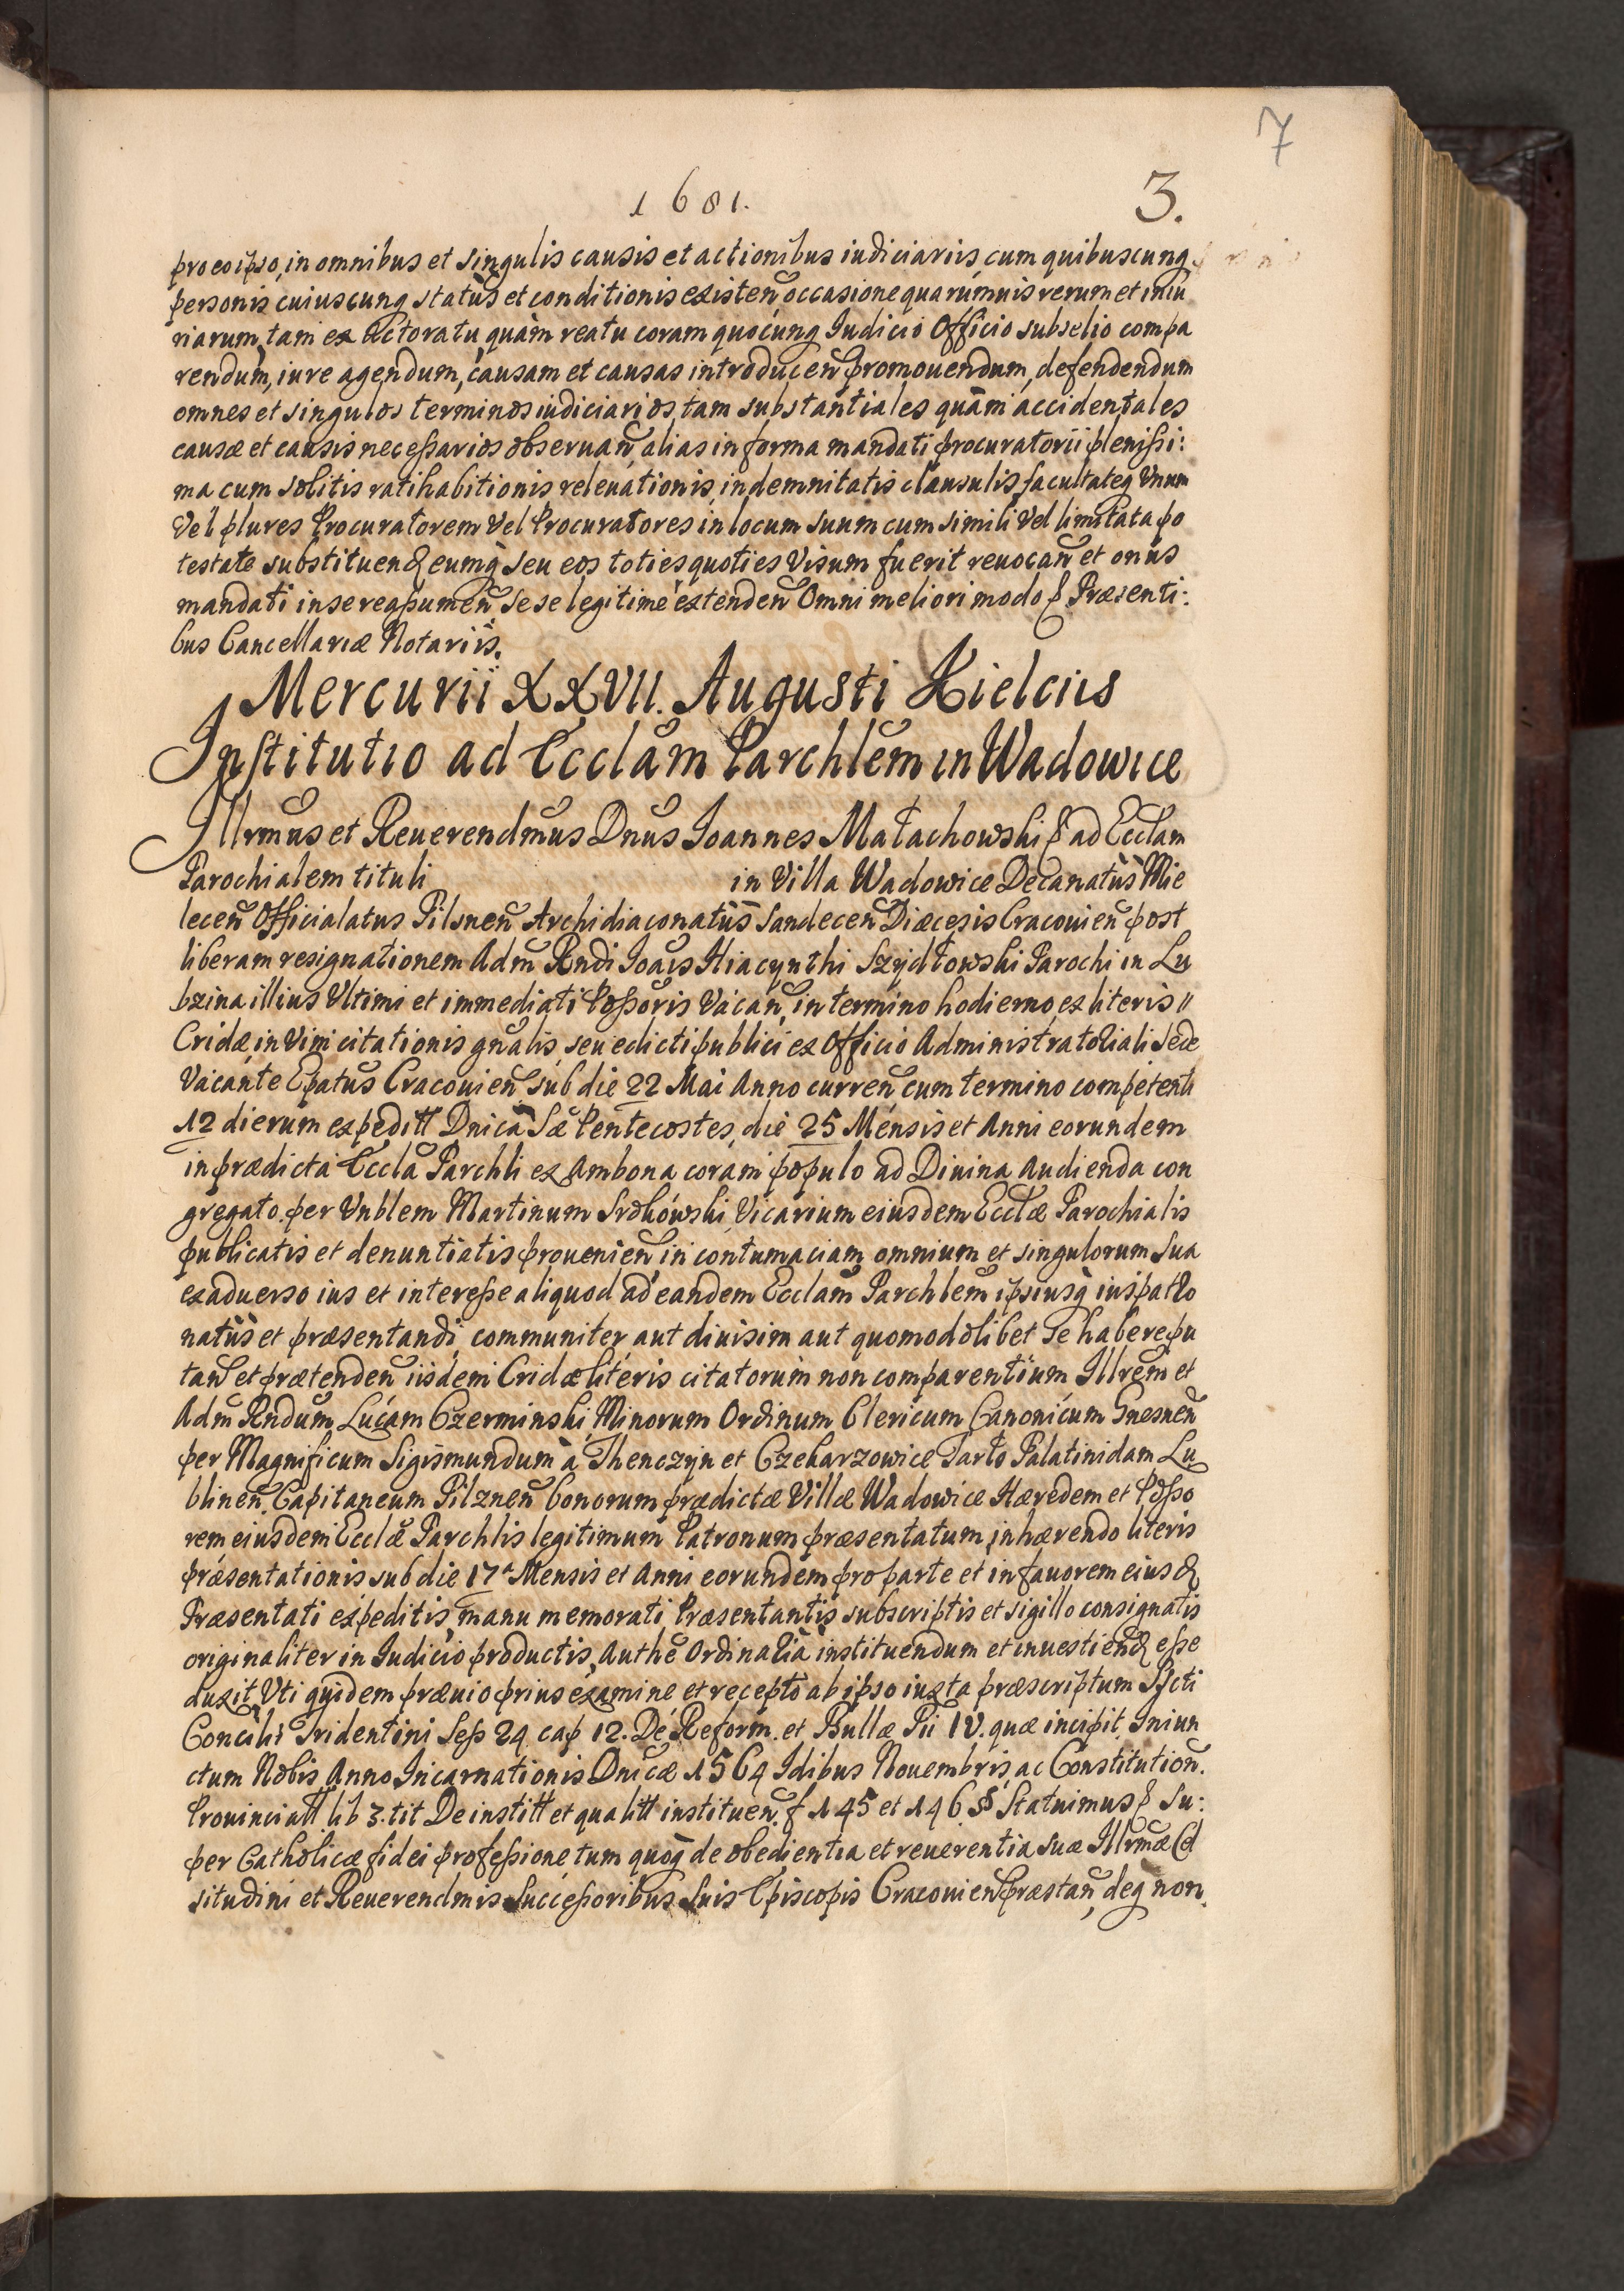 7
1681. 3.
pro eo ipso, in omnibus et singulis causis et actionibus iudiciariis, cum quibuscunq
personis cuiuscunq statùs et conditionis existen̄ occasione quarumuis rerum et iniu
riarum, tam ex actoratu quàm reatu coram quocunq Iudicio Officio subselio compa
rendum, iure agendum, causam et causas introducen̄ promouendum, defendendum
omnes et singulos terminos iudiciarios, tam substantiales quàm accidentales
causæ et causis necessarios obseruan̄, alias in forma mandati procuratorii plenissi:
ma cum solitis ratihabitionis releuationis, indemnitatis clausulis, facultateq Vnum
Vel plures Procuratorem Vel Procuratores in locum suum cum simili Vel limitata po
testate substituen& eumq seu eos toties quoties Visum fuerit reuocan̄ et onùs
mandati in se reassumen̄ se se legitimè extenden̄ Omni meliori modo & Præsenti:
bus Cancellariæ Notariis.
Mercurii XXVII. Augusti Kielciis
Institutio ad Eccla͠m Parchle͠m in Wadowice
Illrmus et Reuerendmus Dnus Ioannes Małachowski & ad Eccla͠m
Parochialem tituli in Villa Wadowice Decanatùs Mie
lecen̄ Officialatus Pilsnen̄ Archidiaconatùs Sandecen̄ Diæcesis Cracouien̄ post
liberam resignationem Adm̄ Rndi Ioan̄is Hiacynthi Szydłowski Parochi in Lu
bzina illius Vltimi et immediati Possoris Vacan̄, in termino hodierno, ex literis //
Cridæ, in Vim citationis gn̄alis, seu edicti publici ex Officio Administratoriali Sede
Vacante Ep̄atus Cracouien̄ sub die 22 Mai Anno curren̄ cum termino competenti
12 dierum expeditt Dnica Sæ Pentecostes, die 25 Mensis et Anni eorundem
in prædicta Eccla Parchli ex Ambona coram populo ad Diuina Audienda con
gregato, per Vnblem Martinum Srokowski Vicarium eiusdem Ecclæ Parochialis
publicatis et denuntiatis prouenien̄, in contumaciam omnium et singulorum sua
ex aduerso ius et interesse aliquod ad eandem Ecclam Parchlem ipsiusq ius patro
natùs et præsentandi, communiter aut diuisim aut quomodolibet Se habere pu
tan̄ et prætenden̄ iisdem Cridæ literis citatorum non comparentium Illrem et
Adm̄ Rndum Lucam Czerminski, Minorum Ordinum Clericum, Canonicum Gnesnen̄
per Magnificum Sigismundum à Thenczyn et Czekarzowice Tarło Palatinidam Lu
blinen̄, Capitaneum Pilznen̄ bonorum prædictæ Villæ Wadowice Hæredem et Posso
rem, eiusdem Ecclæ Parchlis legitimum Patronum præsentatum, inhærendo literis
præsentationis sub die 17a Mensis et Anni eorundem pro parte et in fauorem eius&
Præsentati expeditis, manu memorati Præsentantis subscriptis et sigillo consignatis
originaliter in Iudicio productis, Authe Ordinaria instituendum et inuestien& esse
duxit, Vti quidem præuio prius examine et recepto ab ipso iuxta præscriptum Scti
Concilii Tridentini Sess 24 cap 12. De Reform. et Bullæ Pii IV. quæ incipit Iniun
ctum Nobis Anno Incarnationis Dnicæ 1564 Idibus Nouembris, ac Constitution̄.
Prouinciatt lib 3. tit De institt et qualitt instituen̄. f 145 et 146 § Statuimus & Su:
per Catholicæ fidei professione tum quoq de obedientia et reuerentia suæ Illrmæ Cel
situdini et Reuerendmis Successoribus Suis Episcopis Cracouien̄ præstan̄, deq non